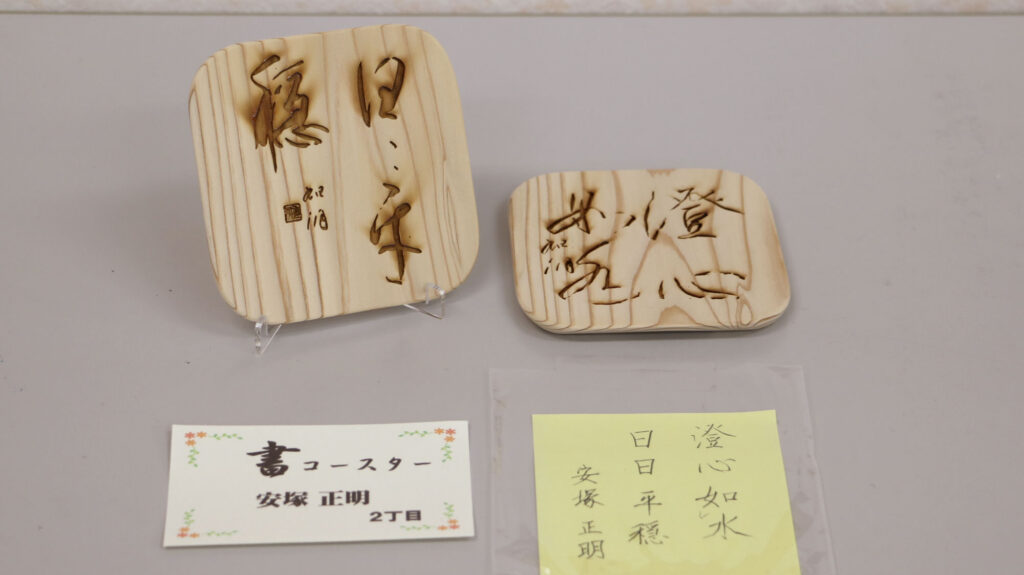 日〻平
穏
澄心
如水
書コースター
安塚 正明
2丁目
澄心如水
日日平穏
安塚正明